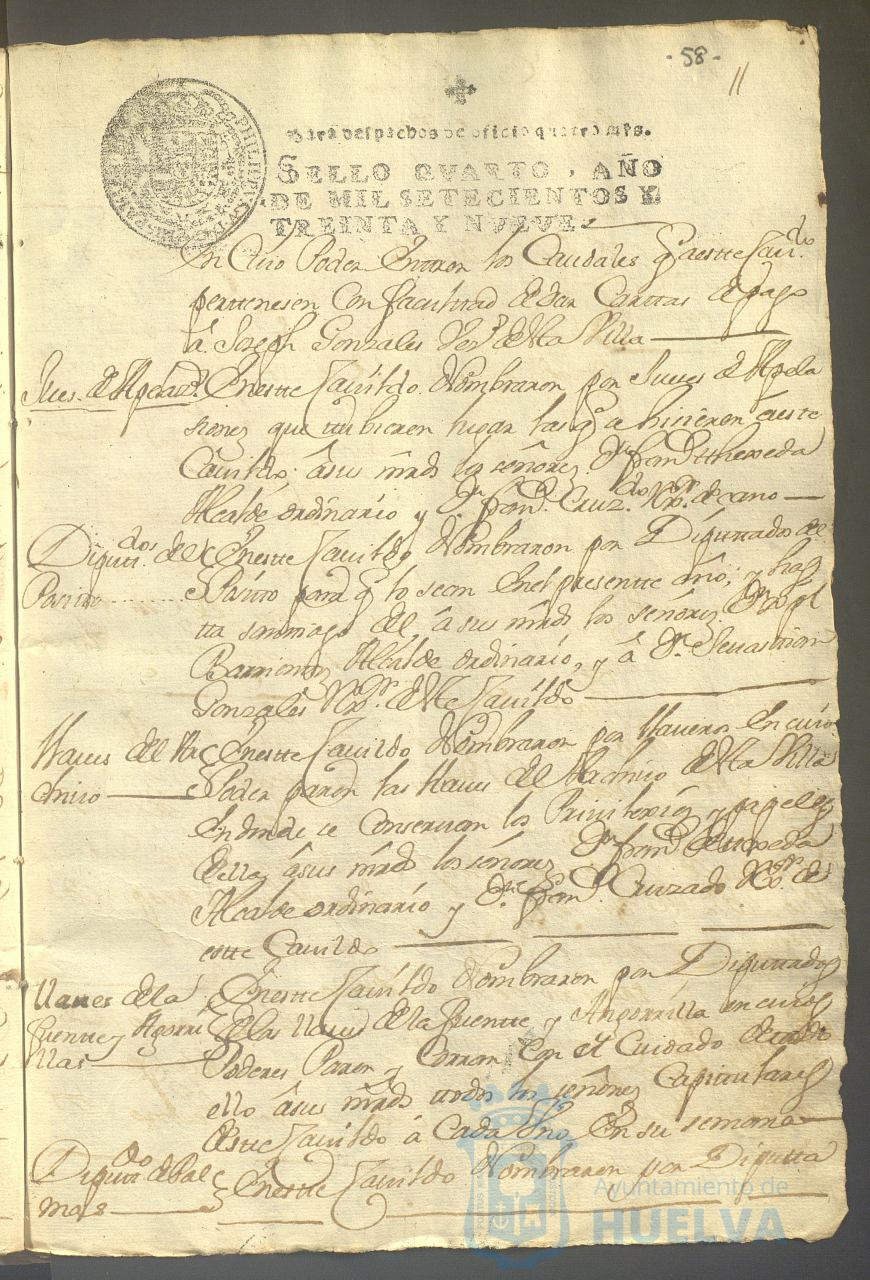 -58-
11
Para despachos de oficio quatro mrs.
SELLO QVARTO, AÑO
DE MIL SETECIENTOS Y
TREINTA Y NUEVE.
PHILIPPVS V D G
En Cuio Poder Entraren los Caudales q aestte Cavdo
perttenesen Con facultad de dar Carttas de pago
â Joseph Gonzales Vesº. de Sta Villa
Jues. de Apelazs.
En estte Cavildo Nombraron por Jueses de Apela
siones que ttubieren lugar las q se hisieren â este
Cavildo âsus mrds los señores Dn. franco
Alcalde ordinario y Dn. franco. Cruzdo. Rexor. decano
Diputdos. del
Posito
En estte Cavildo Nombraron por Diputtados del
Posito para q lo sean En el presentte año, y has
tta santtiago del âsus mrds los señores Dn
Barrientos Alcalde ordinario, y â Dn. Sevasttian
Gonzales Rexor. de estte Cavildo
llaves del Ar
chivo
En estte Cavildo Nombraron por llaveros En cuio
Poder paren las llaves del Archivo de Sta Villa
En donde se Conservan los Privilexios y papeles
della âsus mrds los señores Dn. franco de Zepeda
Alcalde ordinario y Dn. franco. Cruzado Rexor. de
estte Cavildo
llaves de la
fuentte y Agorri
llas
En estte Cavildo Nombraron por Diputtados
de las llaves de la fuentte y Angorrilla en cuios
Poderes Paren y Corran Con el Cuidado de todo
ello âsus mrds ttodos los señores Capitulares
destte Cavildo â Cada Uno En su semana
Diputdo de Pal
mas
En estte Cavildo Nombraron por Diputta
Ayuntamiento de
HUELVA